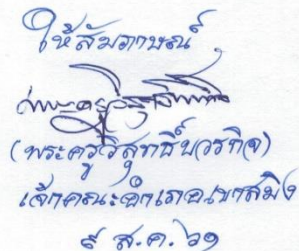 ให้สัมภาษณ์
(พระครูวิสุทธิ์บวรกิจ)
เจ้าคณะอำเภอเขาสมิง
๙ ส.ค. ๖๑